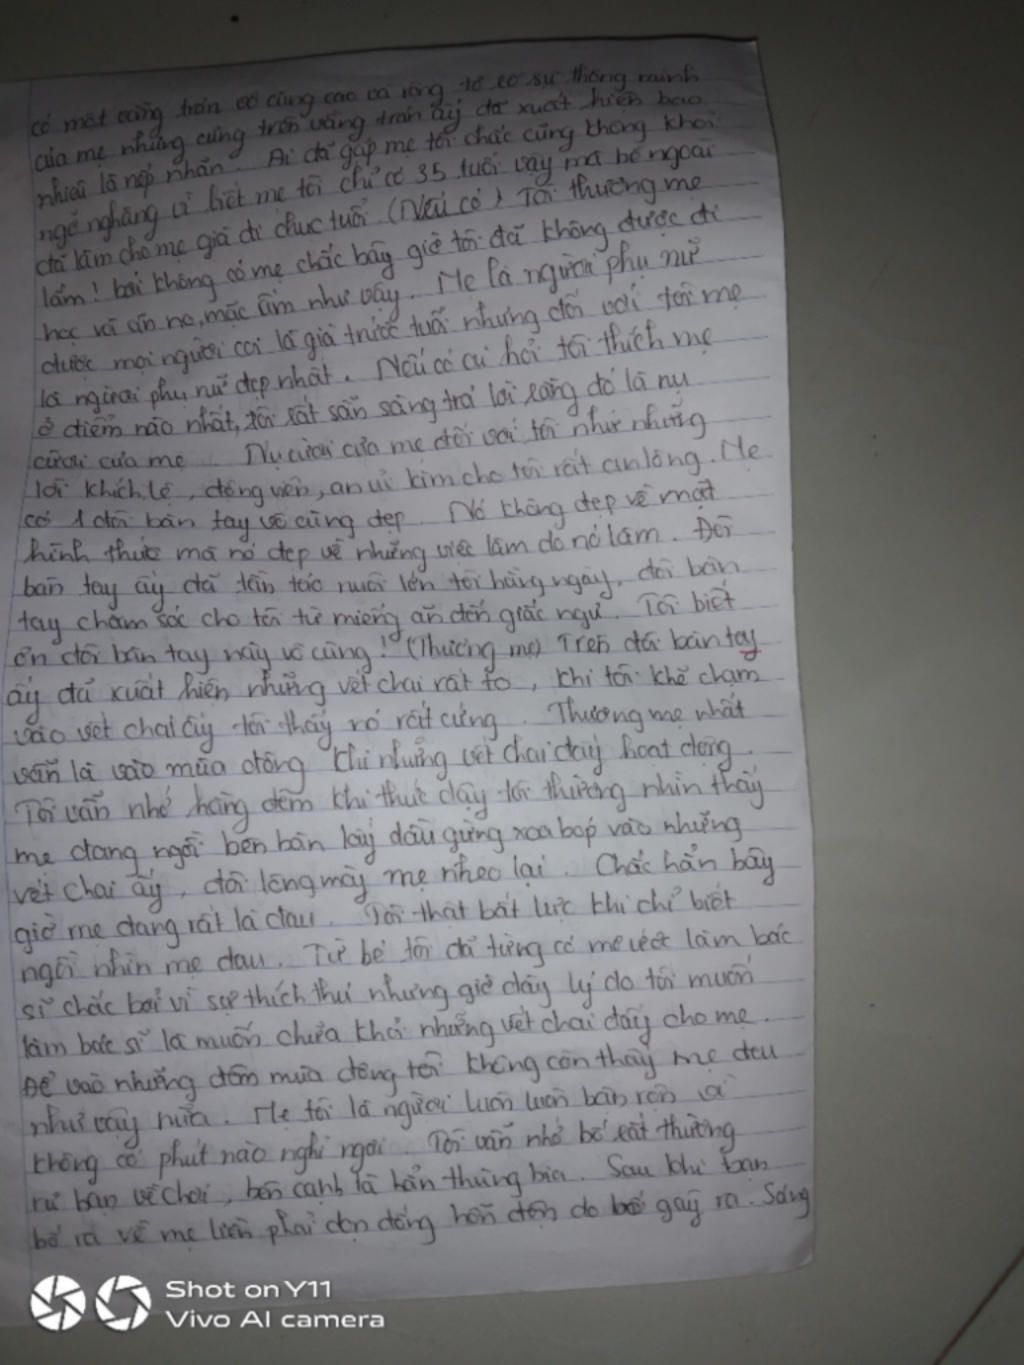 có một vầng trán vô cùng cao và rộng tỏ rõ sự thông minh
của mẹ nhưng cũng trên vầng trán ấy đã xuất hiện bao
nhiêu là nếp nhăn. Ai đã gặp mẹ tôi chắc cũng không khỏi
ngỡ nghàng vì biết mẹ tôi chỉ có 35 tuổi vậy mà bề ngoài
đã làm cho mẹ già đi chục tuổi (Nếu có) Tôi thương mẹ
lắm! bởi không có mẹ chắc bây giờ tôi đã không được đi
học và ăn no, mặc ấm như vậy. Mẹ là người phụ nữ
được mọi người coi là già trước tuổi nhưng đối với tôi mẹ
là người phụ nữ đẹp nhất. Nếu có ai hỏi tôi thích mẹ
ở điểm nào nhất, tôi rất sẵn sàng trả lời rằng đó là nụ
cười của mẹ. Nụ cười của mẹ đối với tôi như những
lời khích lệ, động viên, an ủi làm cho tôi rất an lòng. Mẹ
có 1 đôi bàn tay vô cùng đẹp. Nó không đẹp về mặt
hình thức mà nó đẹp về những việc làm do nó làm. Đôi
bàn tay ấy đã tần tảo nuôi lớn tôi hằng ngày, đôi bàn
tay chăm sóc cho tôi từ miếng ăn đến giấc ngủ. Tôi biết
ơn đôi bàn tay này vô cùng! (Thương mẹ) Trên đôi bàn tay
ấy đã xuất hiện những vết chai rất to, khi tôi khẽ chạm
vào vết chai ấy tôi thấy nó rất cứng. Thương mẹ nhất
vẫn là vào mùa đông khi những vết chai dày hoạt động.
Tôi vẫn nhớ hằng đêm khi thức dậy tôi thường nhìn thấy
mẹ đang ngồi bên bàn lấy dầu gừng xoa bóp vào những
vết chai ấy, đôi lông mày mẹ nheo lại. Chắc hẳn bây
giờ mẹ đang rất là đau. Tôi thật bất lực khi chỉ biết
ngồi nhìn mẹ đau. Từ bé tôi đã từng có mơ ước làm bác
sĩ chắc bởi vì sự thích thú nhưng giờ đây lý do tôi muốn
làm bác sĩ là muốn chữa khỏi những vết chai dày cho mẹ.
Để vào những đêm mùa đông tôi không còn thấy mẹ đau
như vậy nữa. Mẹ tôi là người luôn luôn bận rộn và
không có phút nào nghỉ ngơi. Tôi vẫn nhớ bố rất thường
rủ bạn về chơi, bên cạnh là hẳn thùng bia. Sau khi bạn
bố ra về mẹ luôn phải dọn đống hỗn độn do bố gây ra. Sáng
Shot on Y11
Vivo AI camera